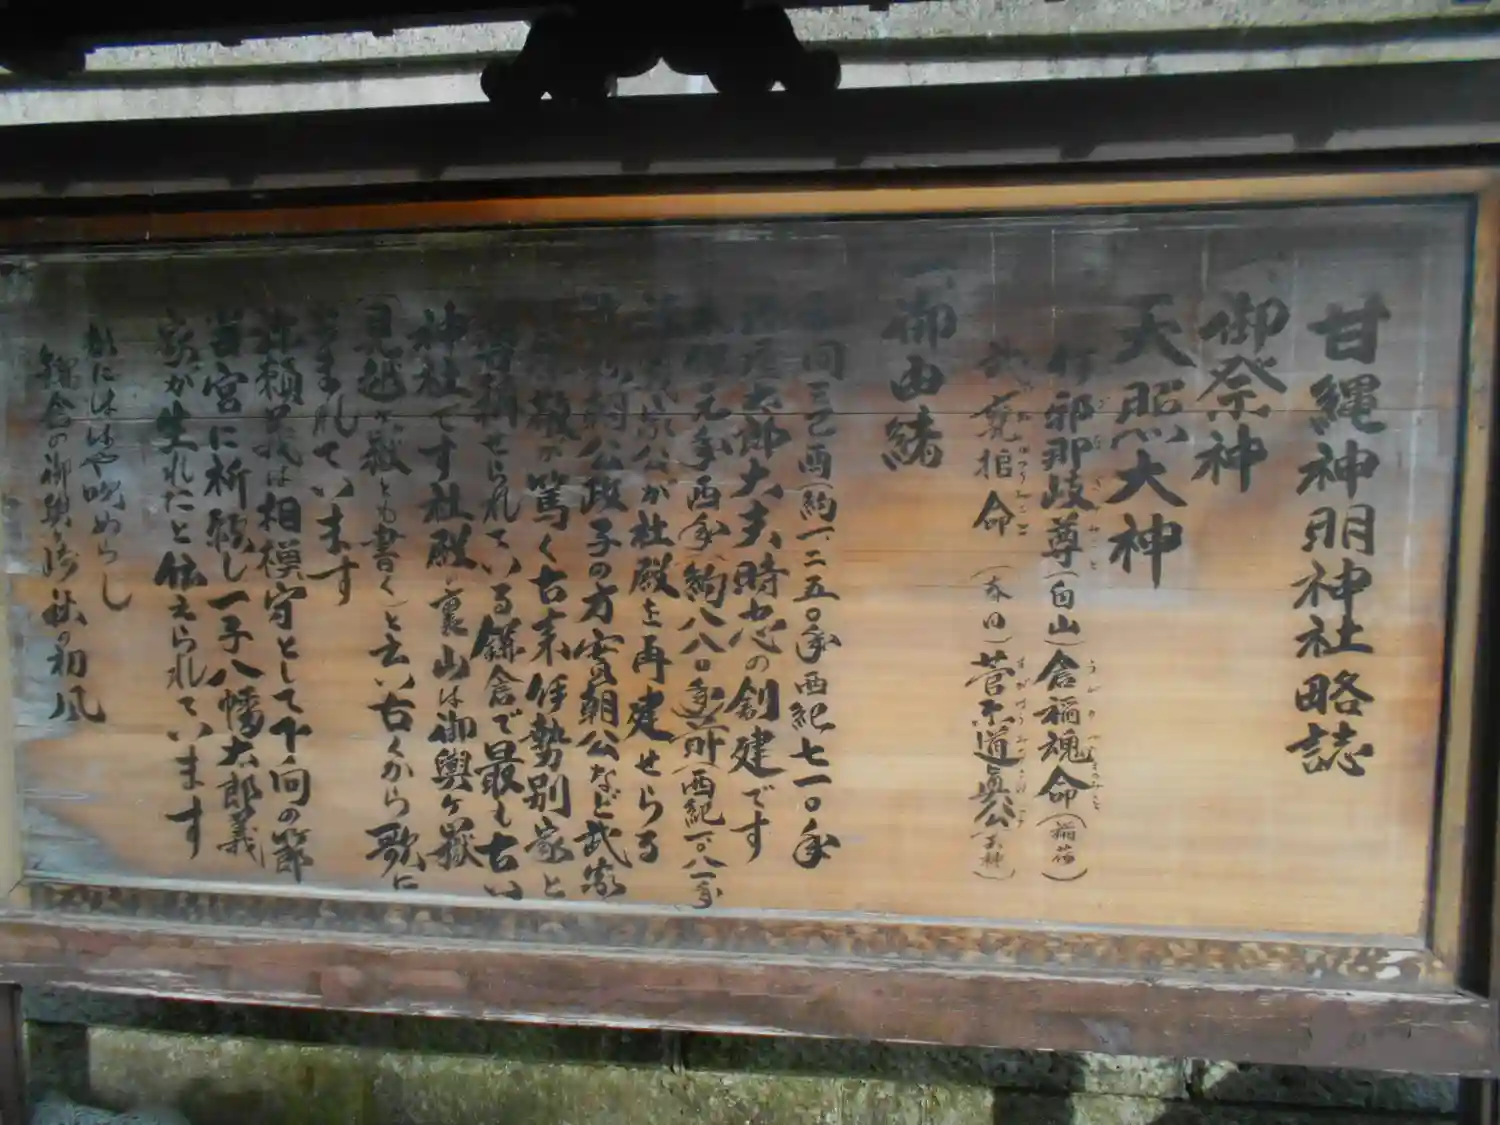 甘縄神明神社略誌
御祭神
天照大神
伊邪那岐尊(白山)倉稲魂命(稲荷)
武甕槌命(春日)菅原道真公(天神)
御由緒
和同三己酉(約一、二五〇年西紀七一〇年
染屋太郎大夫時忠の創建です
永保元年酉年、約八八〇年前(西紀一〇八一年
源義家公が社殿を再建せらる
源頼朝公政子の方実朝公など武家
の尊敬が篤く古来伊勢別家と
尊称せられている鎌倉で最も古い
神社です社殿の裏山は御輿ヶ嶽
(見越ヶ嶽とも書く)と云い古くから歌に
よまれています
源頼義は相模守として下向の節
当宮に祈願し一子八幡太郎義
家が生れたと伝えられています
都にははや吹ぬらし
鎌倉の御輿ヶ崎秋の初風